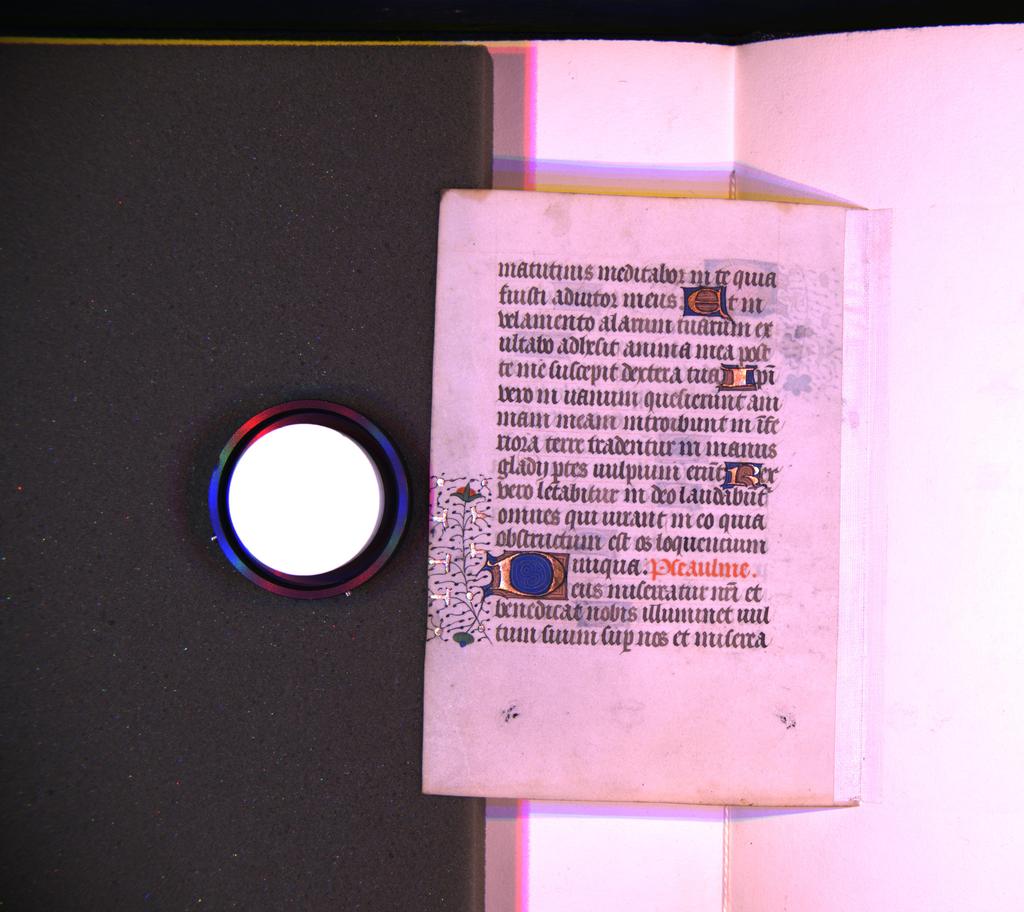 matutinis meditabor in te quia
fuisti adiutor meus. Et in
velamento alarum tuarum ex
ultabo adhesit anima mea post
te me suscepit dextera tua Ipi
vero in uanum quesierunt ani
mam meam introibunt in ife
riora terre tradentur in manus
gladij ptes uulpium erut Rex
vero letabitur in deo laudabut
omnes qui iurant in eo quia
obstructum est os loquentium
iniqua. Pseaulme.
Deus misereatur nri et
benedicat nobis illuminet uul
tum suum sup nos et miserea